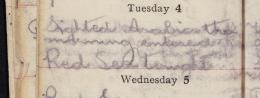 Tuesday 4
Sighted Arabia this
morning entered
Red Sea tonight
Wednesday 5